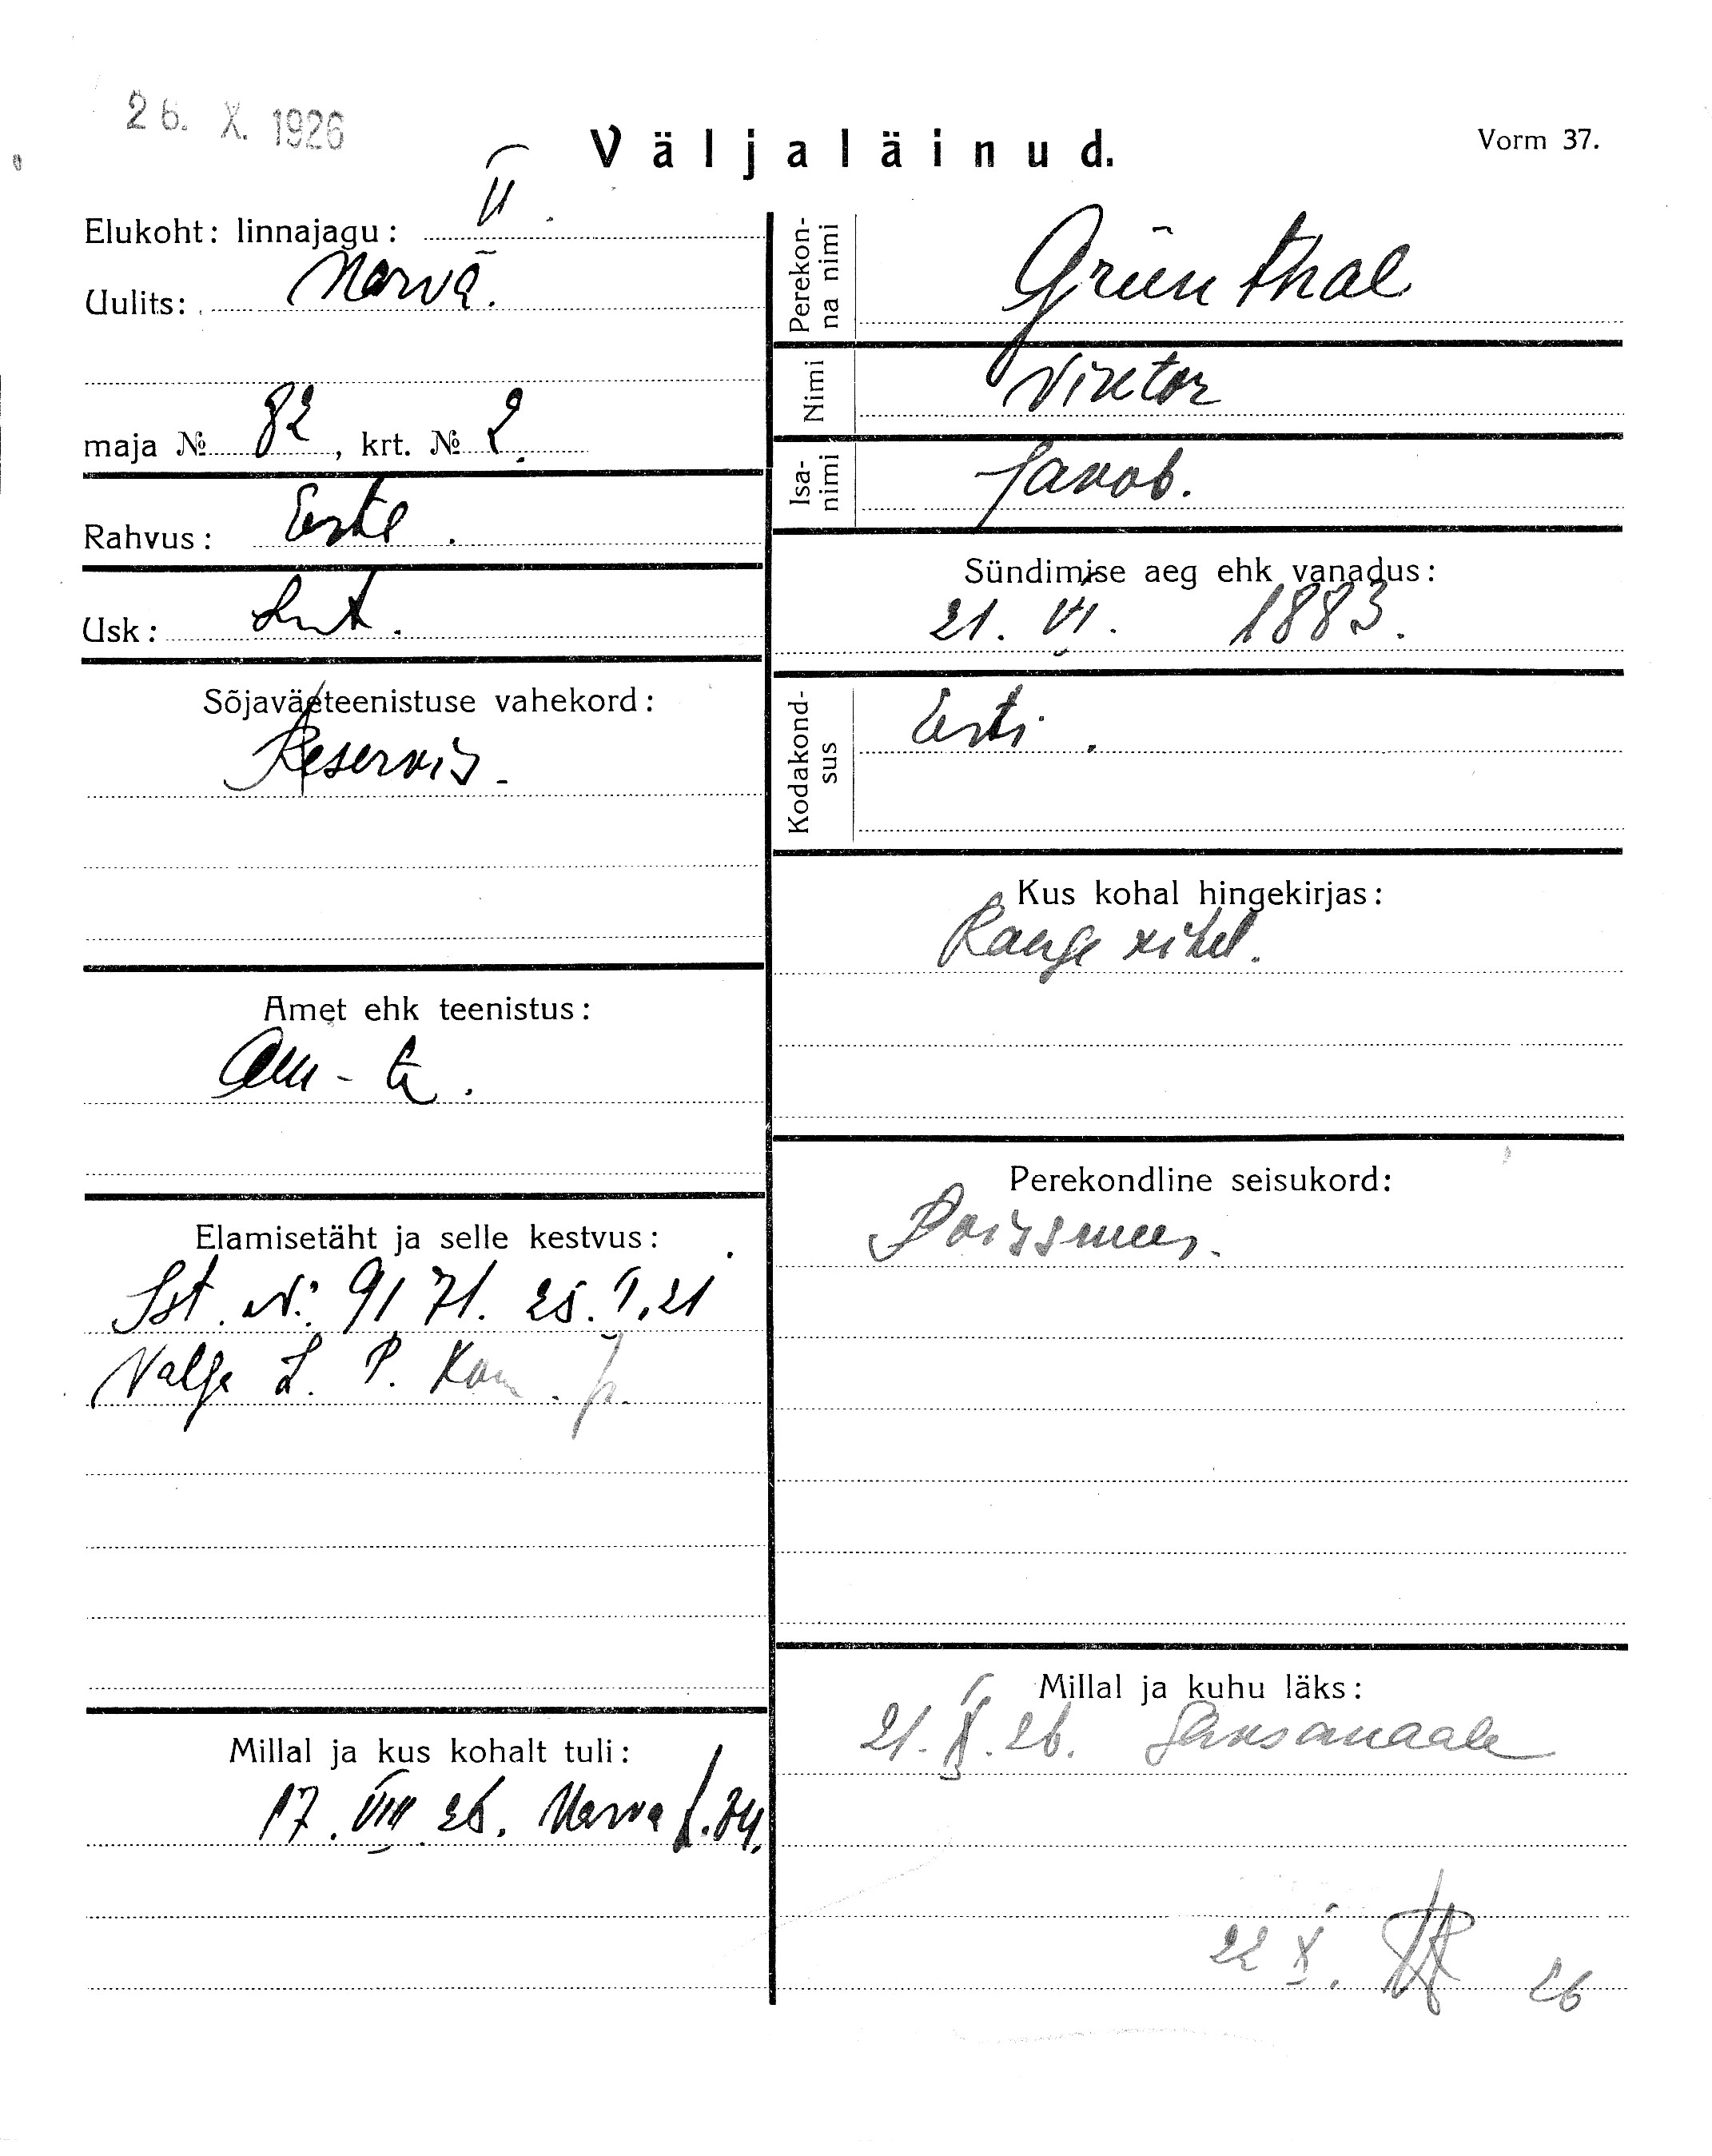 26. X. 1926
Väljaläinud.
Vorm 37.
Elukoht: linnajagu: II.
Uulits: Narva.
maja № 82, krt. № 2.
Rahvus: Este.
Usk: Lut.
Sõjaväeteenistuse vahekord:
Reservis.
Amet ehk teenistus:
Elamisetäht ja selle kestvus:
Ist. N: 9171. 25. V. 21
Valga L. P. Kom.
Millal ja kus kohalt tuli:
17. VIII 26. Narva
Perekonna nimi
Grünthal
Nimi
Viktor
Isanimi
Jakob.
Sündimise aeg ehk vanadus:
21. VI. 1883.
Kodakondsus
Eesti.
Kus kohal hingekirjas:
Range kihel.
Perekondline seisukord:
Poissmees.
Millal ja kuhu läks:
21. X. 26.
22 X. 26